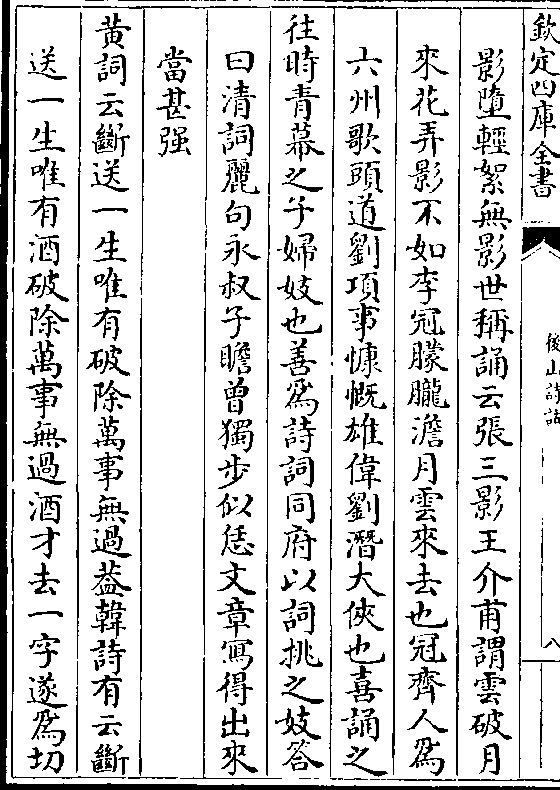 欽定四庫全書
後山詩話
八
影墮輕絮無影世稱誦云張三影王介甫謂雲破月
來花弄影不如李冠朦朧澹月雲來去也冠齊人為
六州歌頭道劉項事慷慨雄偉劉潛大俠也喜誦之
往時青幕之子婦妓也善為詩詞同府以詞挑之妓答
曰清詞麗句永叔子瞻曾獨步似恁文章寫得出來
當甚强
黄詞云斷送一生唯有破除萬事無過葢韓詩有云斷
送一生唯有酒破除萬事無過酒才去一字遂為切